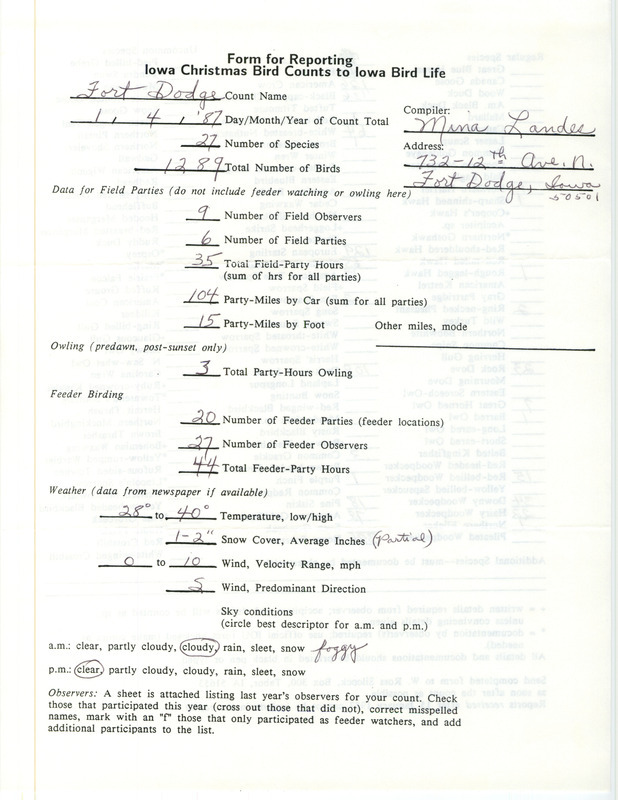 Form for Reporting
Iowa Christmas Bird Counts to Iowa Bird Life
Fort Dodge Count Name
1, 4, '87 Day/Month/Year of Count Total
27 Number of Species
1289 Total Number of Birds
Compiler:
Mina Landes
Address:
732-12th Ave. N.
Fort Dodge, Iowa
50501
Data for Field Parties (do not include feeder watching or owling here)
9 Number of Field Observers
6 Number of Field Parties
35 Total Field-Party Hours
(sum of hrs for all parties)
104 Party-Miles by Car (sum for all parties)
15 Party-Miles by Foot Other miles, mode
Owling (predawn, post-sunset only)
3 Total Party-Hours Owling
Feeder Birding
20 Number of Feeder Parties (feeder locations)
27 Number of Feeder Observers
44 Total Feeder-Party Hours
Weather (data from newspaper if available)
28° to 40° Temperature, low/high
1-2" Snow Cover, Average Inches (Partial)
0 to 10 Wind, Velocity Range, mph
S Wind, Predominant Direction
Sky conditions
(circle best descriptor for a.m. and p.m.)
a.m.: clear, partly cloudy, cloudy, rain, sleet, snow foggy
p.m.: clear, partly cloudy, cloudy, rain, sleet, snow
Observers: A sheet is attached listing last year's observers for your count. Check
those that participated this year (cross out those that did not), correct misspelled
names, mark with an "f" those that only participated as feeder watchers, and add
additional participants to the list.